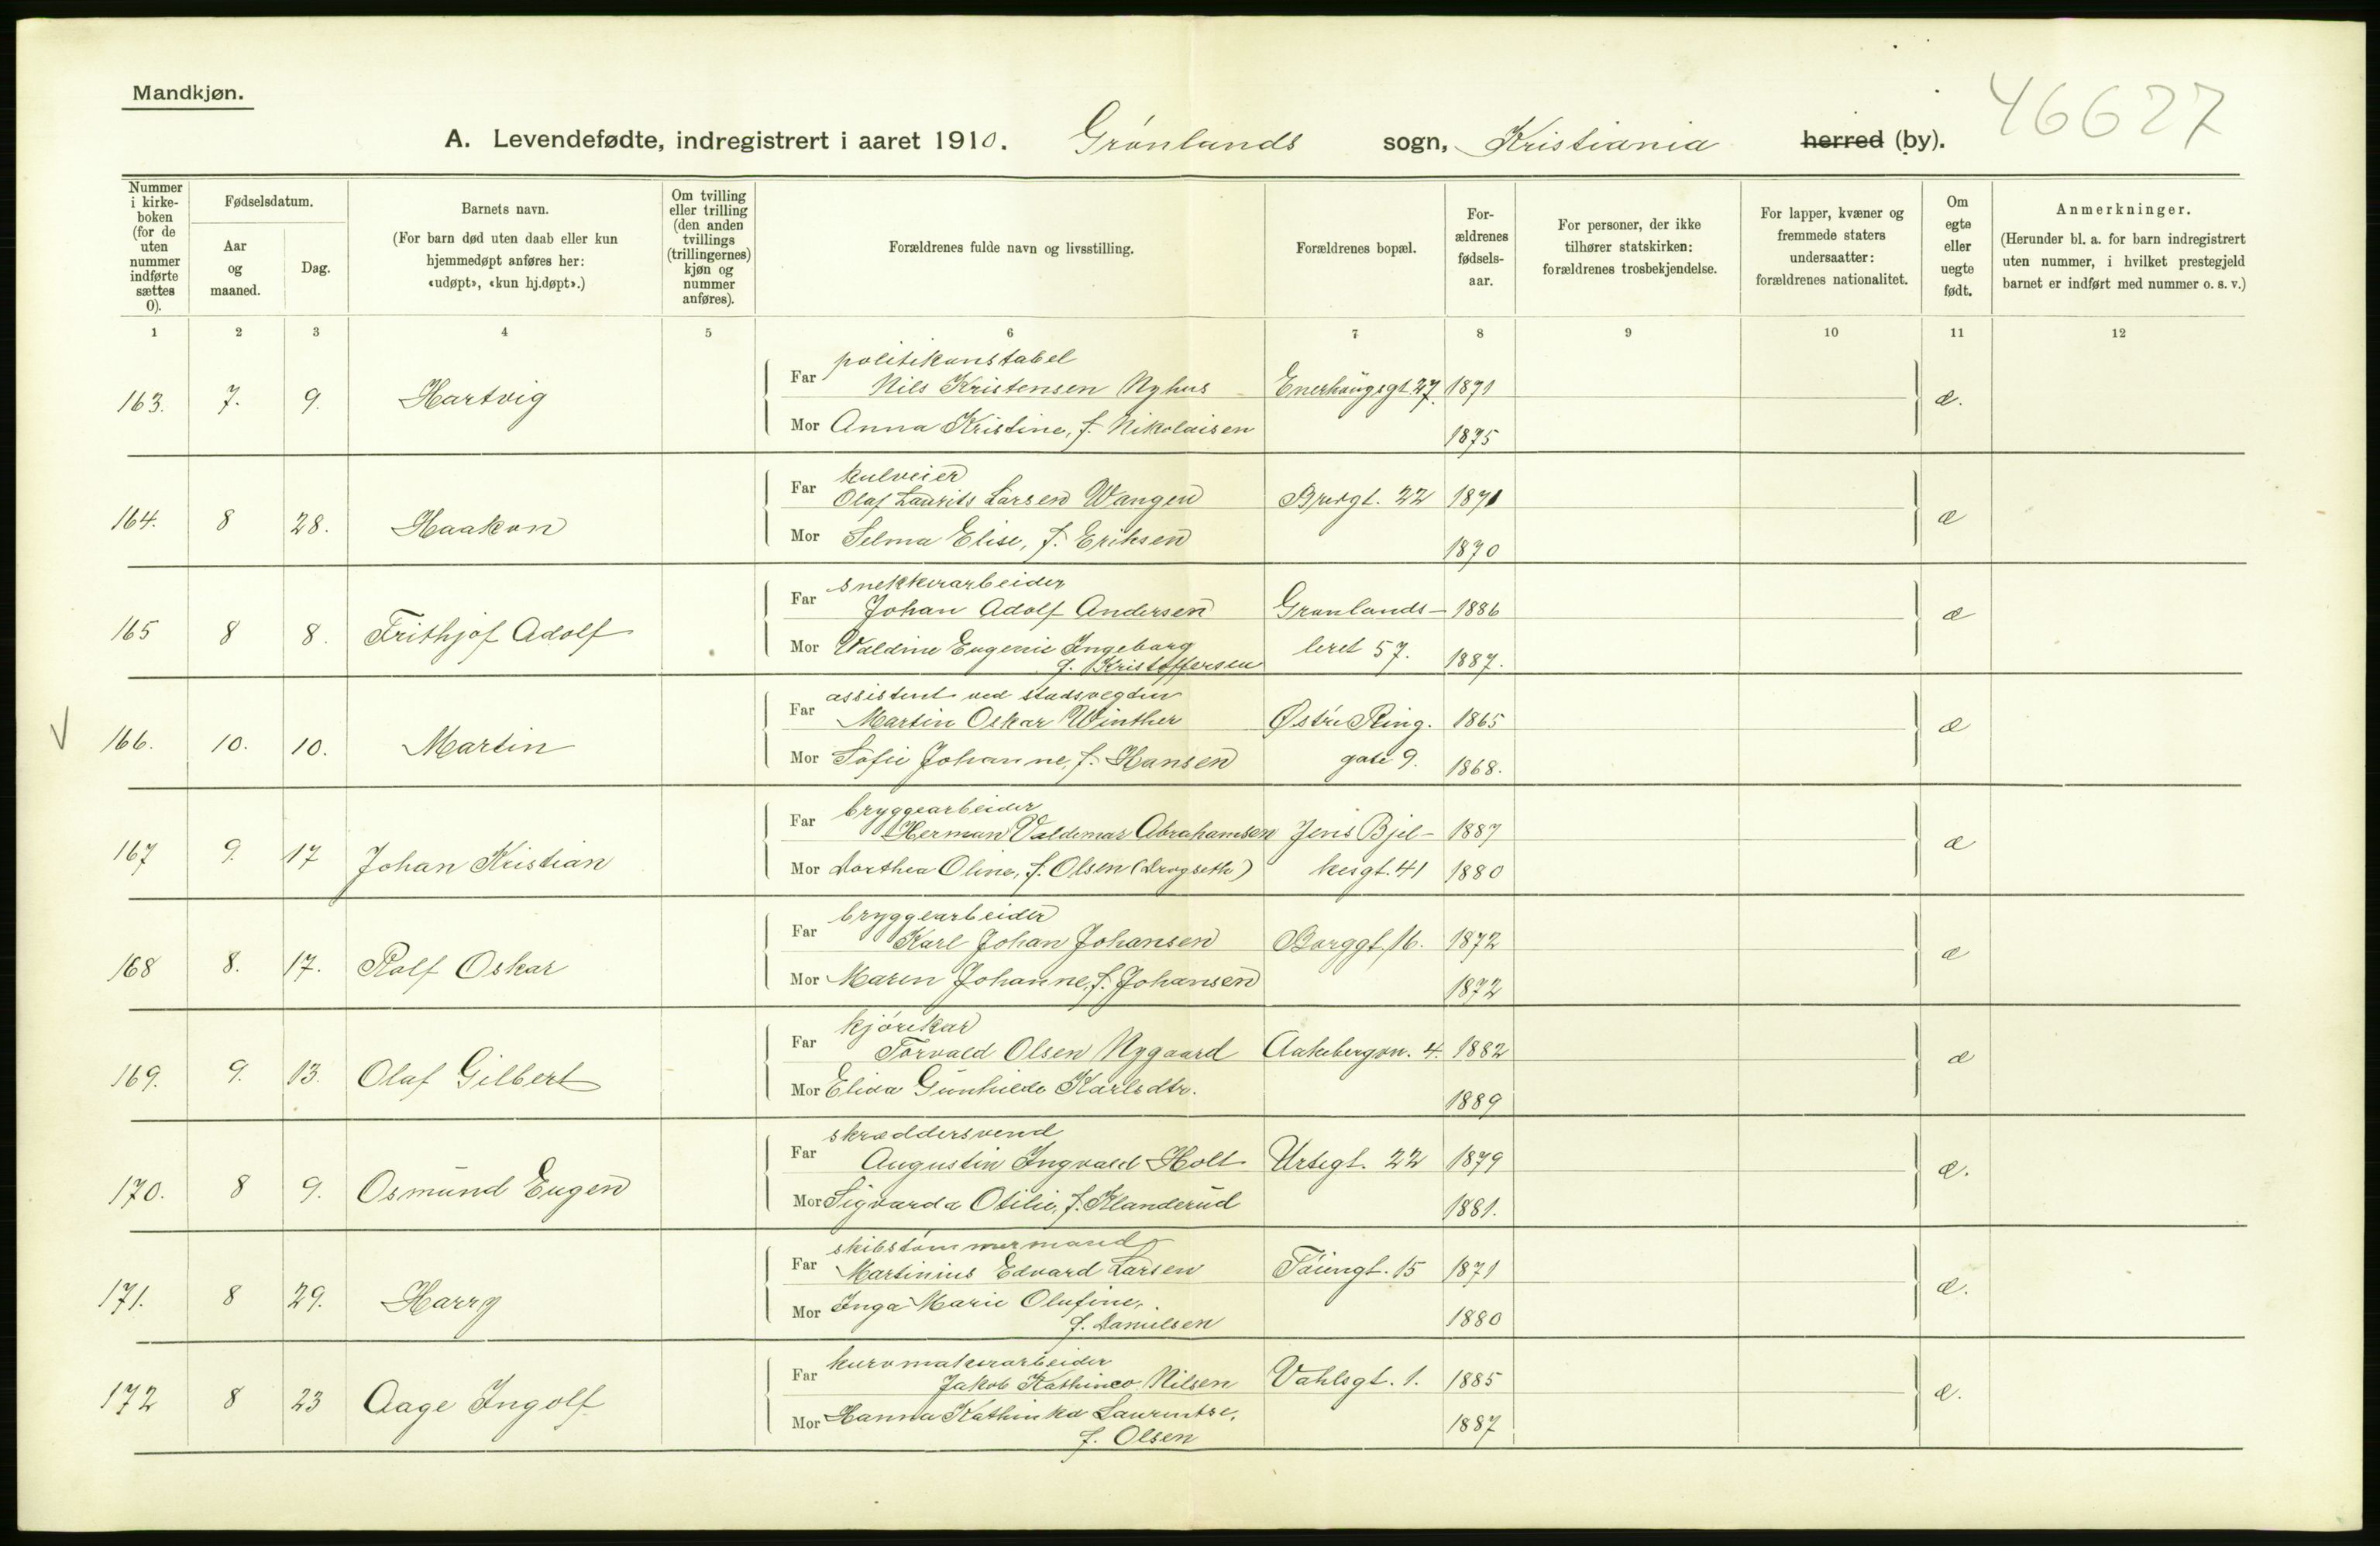 Mandkjøn.
46627
A. Levendefødte, indregistrert i aaret 1910. Grönlands sogn, Kristiania herred (by).
Nummer i kirke-boken (for de uten nummer indførte sættes 0).
Fødselsdatum.
Aar og maaned.
Dag.
Barnets navn.
(For barn død uten daab eller kun hjemmedøpt anføres her: «udøpt», «kun hj.døpt».)
Om tvilling eller trilling (den anden tvillings (trillingernes) kjøn og nummer anføres).
Forældrenes fulde navn og livsstilling.
Forældrenes bopæl.
For-ældrenes fødsels-aar.
For personer, der ikke tilhører statskirken: forældrenes trosbekjendelse.
For lapper, kvæner og fremmede staters undersaatter: forældrenes nationalitet.
Om egte eller uegte født.
Anmerkninger.
(Herunder bl. a. for barn indregistrert uten nummer, i hvilket prestegjeld barnet er indført med nummer o. s. v.)
1 2 3 4 5 6 7 8 9 10 11 12
politikonstabel
163. 7. 9. Hartvig Far Nils Kristensen Nyhus Enerhaugsgt. 27. 1871 æ.
Mor Anna Kristine, f. Nikolaisen 1875
kulveier
164. 8 28. Haakon Far Olaf Laurits Larsen Wangen Brugt. 22 1871 æ
Mor Selma Elise, f. Eriksen 1870
snekkerarbeider
165 8 8. Frithjof Adolf Far Johan Adolf Andersen Grønlands- 1886 æ
Mor Valdine Eugenie Ingeborg leret 57. 1887.
f. Kristoffersen
assistent ved stadsfogden
V 166. 10. 10. Martin Far Martin Oskar Winther Østre Ring. 1865 æ
Mor Sofie Johanne, f. Hansen gate 9. 1868.
bryggearbeider
167 9. 17 Johan Kristian Far Herman Valdemar Abrahamsen Jens Bjel- 1887 æ
Mor Dorthea Oline, f. Olsen (Drogseth) kesgt. 41 1880
bryggearbeider
168 8. 17. Rolf Oskar Far Karl Johan Johansen Borggt. 16. 1872 æ
Mor Maren Johanne, f. Johansen 1872
kjörekar
169. 9. 13. Olaf Gilbert Far Torvald Olsen Nygaard Aakebergvn. 4. 1882 æ
Mor Elida Gunhilde Karlsdtr. 1889
skræddersvend
170. 8 9. Osmund Eugen Far Augustin Ingvald Holt Urtegt. 22 1879 æ.
Mor Sigvarda Otilie, f. Klanderud 1881.
skibstömmermand
171. 8 29. Harry Far Martinius Edvard Larsen Töiengt. 15 1871 æ.
Mor Inga Marie Olufine, 1880
f. Danielsen
kurvmakerarbeider
172 8 23 Aage Ingolf Far Jakob Nilsen Vahlsgt. 1. 1885 æ.
Mor Hanna Kathinka Laurentse, 1887
f. Olsen